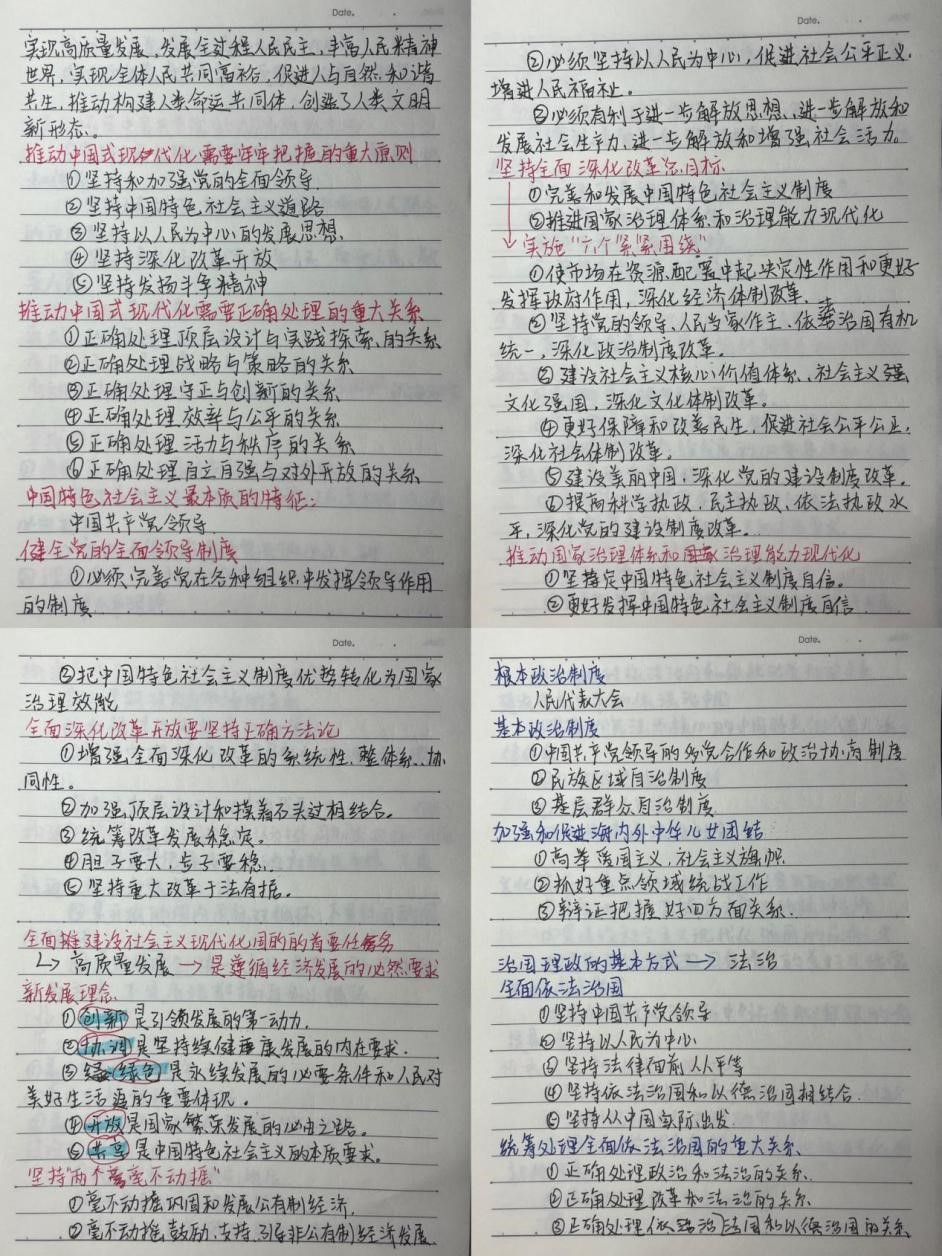 Date.
实现高质量发展,发展全过程人民民主,丰富人民精神
世界,实现全体人民共同富裕,促进人与自然和谐
共生,推动构建人类命运共同体,创造了人类文明
新形态。
推动中国式现代化需要牢牢把握的重大原则
①坚持和加强党的全面领导
②坚持中国特色社会主义道路
③坚持以人民为中心的发展思想
④坚持深化改革开放
⑤坚持发扬斗争精神
推动中国式现代化需要正确处理的重大关系
①正确处理顶层设计与实践探索的关系
②正确处理战略与策略的关系
③正确处理守正与创新的关系
④正确处理效率与公平的关系
⑤正确处理活力与秩序的关系
⑥正确处理自立自强与对外开放的关系
中国特色社会主义最本质的特征:
中国共产党领导
健全党的全面领导制度
①必须完善党在各种组织中发挥领导作用
的制度
Date.
②必须坚持以人民为中心,促进社会公平正义,
增进人民福祉。
③必须有利于进一步解放思想、进一步解放和
发展社会生产力、进一步解放和增强社会活力。
坚持全面深化改革总目标
①完善和发展中国特色社会主义制度
②推进国家治理体系和治理能力现代化
↓实施“六个紧紧围绕”
①使市场在资源配置中起决定性作用和更好
发挥政府作用,深化经济体制改革.
②坚持党的领导、人民当家作主、依法治国有机
统一,深化政治制度改革。
③建设社会主义核心价值体系、社会主义强
文化强国,深化文化体制改革。
④更好保障和改善民生,促进社会公平公正,
深化社会体制改革。
⑤建设美丽中国,深化党的建设制度改革。
⑥提高科学执政、民主执政、依法执政水
平,深化党的建设制度改革。
推动国家治理体系和治理能力现代化
①坚持定中国特色社会主义制度自信。
②更好发挥中国特色社会主义制度自信
Date.
③把中国特色社会主义制度优势转化为国家
治理效能
全面深化改革开放要坚持正确方法论
①增强全面深化改革的系统性、整体系、协
同性。
②加强顶层设计和摸着石头过相结合。
③统筹改革发展稳定。
④胆子要大,步子要稳.
⑤坚持重大改革于法有据。
全面推建设社会主义现代化国的的首要任务
↳高质量发展→是遵循经济发展的必然要求
新发展理念
①创新是引领发展的第一动力.
②协调是坚持续健康发展的内在要求.
③绿色是永续发展的必要条件和人民对
美好生活追的重要体现。
④开放是国家繁荣发展的必由之路。
⑤共享是中国特色社会主义的本质要求。
坚持“两个毫不动摇”
①毫不动摇巩固和发展公有制经济.
②毫不动摇鼓励、支持、引导非公有制经济发展
Date.
根本政治制度
人民代表大会
基本政治制度
①中国共产党领导的多党合作和政治协商制度
②民族区域自治制度
③基层群众自治制度
加强和促进海内外中华儿女团结
①高举爱国主义、社会主义旗帜
②抓好重点领域统战工作
③辩证把握好四方面关系.
治国理政的基本方式→法治
全面依法治国
①坚持中国共产党领导
②坚持以人民为中心
③坚持法律面前人人平等
④坚持依法治国和以德治国相结合.
⑤坚持从中国实际出发.
统筹处理全面依法治国的重大关系
①正确处理政治和法治的关系.
②正确处理改革和法治的关系
③正确处理依法治国和以德治国的关系